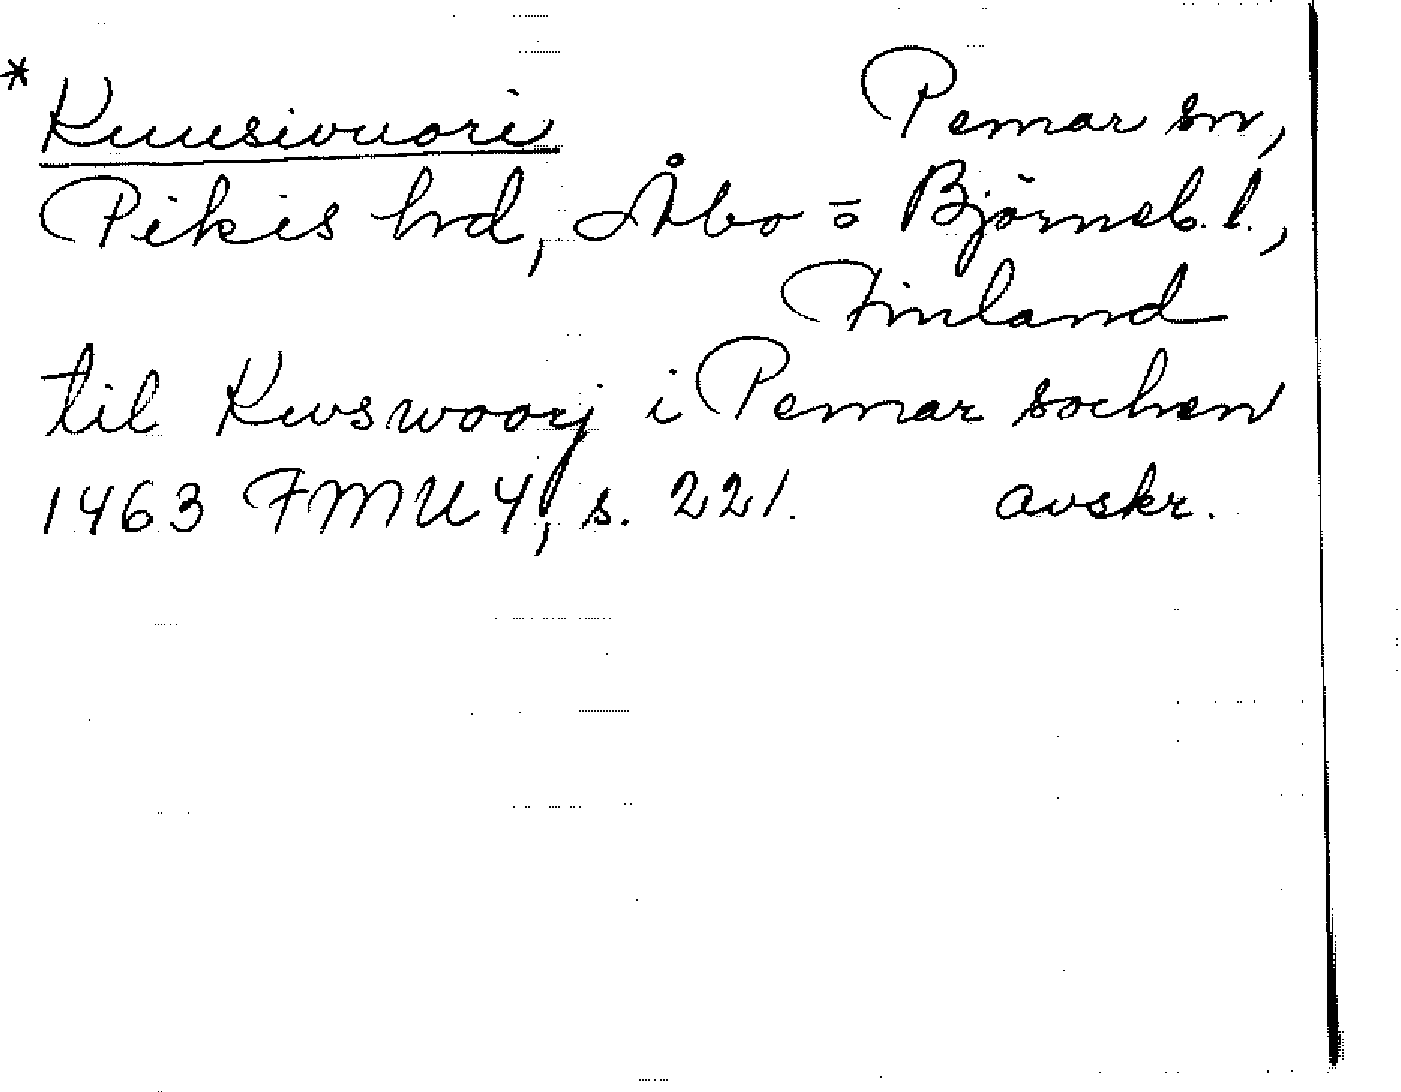 * Kuusivuori Pemar sn,
Pikis hrd, Åbo = Björneb. l.,
Finland
til Kwswoorj i Pemar sochen
1463 FMU 4, s. 221. avskr.